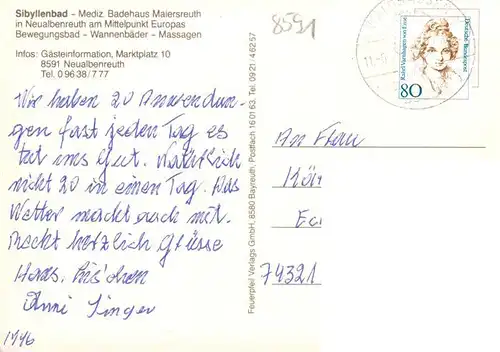 Sibyllenbad – Mediz. Badehaus Maiersreuth
in Neualbenreuth am Mittelpunkt Europas
Bewegungsbad – Wannenbäder – Massagen
Infos: Gästeinformation, Marktplatz 10
8591 Neualbenreuth
Tel. 0 96 38 / 7 77
Wir haben 20 Anwendun-
gen fast jeden Tag es
tut uns gut. Natürlich
nicht 20 in einen Tag. Das
Wetter macht auch mit.
macht herzlich Grüsse
Hans,
Anni Singer
1996
8591
Feuerpfeil Verlags GmbH, 8580 Bayreuth, Postfach 16 01 63, Tel. 09 21 / 4 62 57
Rahel Varnhagen von Ense
Deutsche Bundespost
80
An Frau
74321